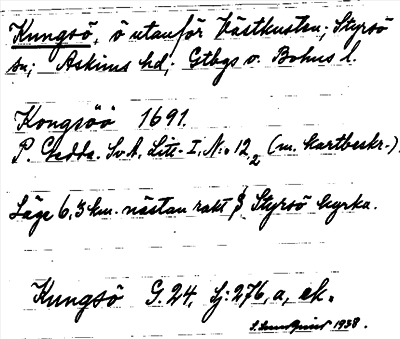 Kungsö, ö utanför Västkusten; Styrsö
sn; Askims hd; Gtbgs o. Bohus l.
Kongsöö 1691.
P. Gedda. Sv A, Litt. I, N:o 12, 2 (m. kartbeskr.)
Läge 6,3 km. nästan rakt S Styrsö kyrka.
Kungsö G. 24, Sj: 276, a, ek.
1938.